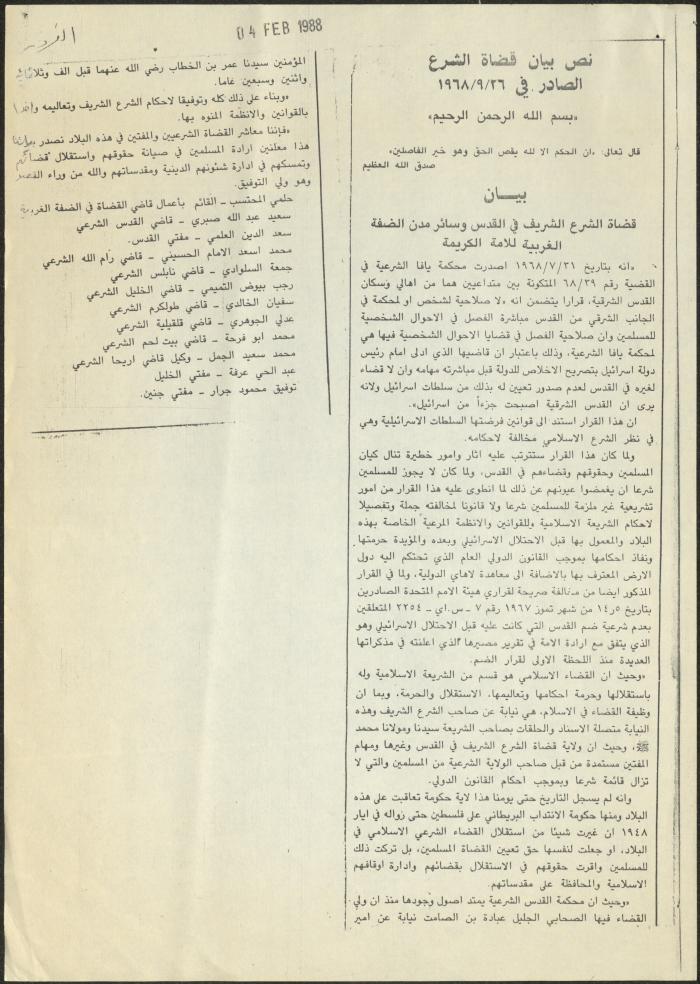 04 FEB 1988
نص بيان قضاة الشرع
الصادر في ١٩٦٨/٩/٢٦
«بسم الله الرحمن الرحيم»
قال تعالى: «ان الحكم الا لله يقص الحق وهو خير الفاصلين»
صدق الله العظيم
بيـــان
قضاة الشرع الشريف في القدس وسائر مدن الضفة
الغربية للامة الكريمة
«انه بتاريخ ١٩٦٨/٧/٣١ اصدرت محكمة يافا الشرعية في
القضية رقم ٦٨/٣٩ المتكونة بين متداعيين هما من اهالي وسكان
القدس الشرقية، قرارا يتضمن انه «لا صلاحية لشخص او لمحكمة في
الجانب الشرقي من القدس مباشرة الفصل في الاحوال الشخصية
للمسلمين وان صلاحية الفصل في قضايا الاحوال الشخصية فيها هي
لمحكمة يافا الشرعية، وذلك باعتبار ان قاضيها الذي ادلى امام رئيس
دولة اسرائيل بتصريح الاخلاص للدولة قبل مباشرته مهامه وان لا قضاء
لغيره في القدس لعدم صدور تعيين له بذلك من سلطات اسرائيل ولانه
يرى ان القدس الشرقية اصبحت جزءاً من اسرائيل».
ان هذا القرار استند الى قوانين فرضتها السلطات الاسرائيلية وهي
في نظر الشرع الاسلامي مخالفة لاحكامه.
ولما كان هذا القرار ستترتب عليه اثار وامور خطيرة تنال كيان
المسلمين وحقوقهم وقضاءهم في القدس، ولما كان لا يجوز للمسلمين
شرعا ان يغمضوا عيونهم عن ذلك لما انطوى عليه هذا القرار من امور
تشريعية غير ملزمة للمسلمين شرعا ولا قانونا لمخالفته جملة وتفصيلا
لاحكام الشريعة الاسلامية وللقوانين والانظمة المرعية الخاصة بهذه
البلاد والمعمول بها قبل الاحتلال الاسرائيلي وبعده والمؤيدة حرمتها
ونفاذ احكامها بموجب القانون الدولي العام الذي تحتكم اليه دول
الارض المعترف بها بالاضافة الى معاهدة لاهاي الدولية، ولما في القرار
المذكور ايضا من مخالفة صريحة لقراري هيئة الامم المتحدة الصادرين
بتاريخ ٥ر١٤ من شهر تموز ١٩٦٧ رقم ٧ ـ س.اي ـ ٢٢٥٤ المتعلقين
بعدم شرعية ضم القدس التي كانت عليه قبل الاحتلال الاسرائيلي وهو
الذي يتفق مع ارادة الامة في تقرير مصيرها الذي اعلنته في مذكراتها
العديدة منذ اللحظة الاولى لقرار الضم.
«وحيث ان القضاء الاسلامي هو قسم من الشريعة الاسلامية وله
باستقلالها وحرمة احكامها وتعاليمها، الاستقلال والحرمة، وبما ان
وظيفة القضاء في الاسلام، هي نيابة عن صاحب الشرع الشريف وهذه
النيابة متصلة الاسناد والحلقات بصاحب الشريعة سيدنا ومولانا محمد
ﷺ، وحيث ان ولاية قضاة الشرع الشريف في القدس وغيرها ومهام
المفتين مستمدة من قبل صاحب الولاية الشرعية من المسلمين والتي لا
تزال قائمة شرعا وبموجب احكام القانون الدولي.
وانه لم يسجل التاريخ حتى يومنا هذا لاية حكومة تعاقبت على هذه
البلاد ومنها حكومة الانتداب البريطاني على فلسطين حتى زواله في ايار
١٩٤٨ ان غيرت شيئا من استقلال القضاء الشرعي الاسلامي في
البلاد، او جعلت لنفسها حق تعيين القضاة المسلمين، بل تركت ذلك
للمسلمين واقرت حقوقهم في الاستقلال بقضائهم وادارة اوقافهم
الاسلامية والمحافظة على مقدساتهم.
«وحيث ان محكمة القدس الشرعية يمتد اصول وجودها منذ ان ولي
القضاء فيها الصحابي الجليل عبادة بن الصامت نيابة عن امير
المؤمنين سيدنا عمر بن الخطاب رضي الله عنهما قبل الف وثلاثمائة
واثنين وسبعين عاما.
«وبناء على ذلك كله وتوفيقا لاحكام الشرع الشريف وتعاليمه
بالقوانين والانظمة المنوه بها.
«فاننا معاشر القضاة الشرعيين والمفتين في هذه البلاد نصدر
هذا معلنين ارادة المسلمين في صيانة حقوقهم واستقلال قضائهم
وتمسكهم في ادارة شئونهم الدينية ومقدساتهم والله من وراء القصد
وهو ولي التوفيق.
حلمي المحتسب ـ القائم بأعمال قاضي القضاة في الضفة الغربية
سعيد عبد الله صبري ـ قاضي القدس الشرعي
سعد الدين العلمي ـ مفتي القدس.
محمد اسعد الامام الحسيني ـ قاضي رام الله الشرعي
جمعة السلوادي ـ قاضي نابلس الشرعي
رجب بيوض التميمي ـ قاضي الخليل الشرعي
سفيان الخالدي ـ قاضي طولكرم الشرعي
عدلي الجوهري ـ قاضي قلقيلية الشرعي
محمد ابو فرحة ـ قاضي بيت لحم الشرعي
محمد سعيد الجمل ـ وكيل قاضي اريحا الشرعي
عبد الحي عرفة ـ مفتي الخليل
توفيق محمود جرار ـ مفتي جنين.